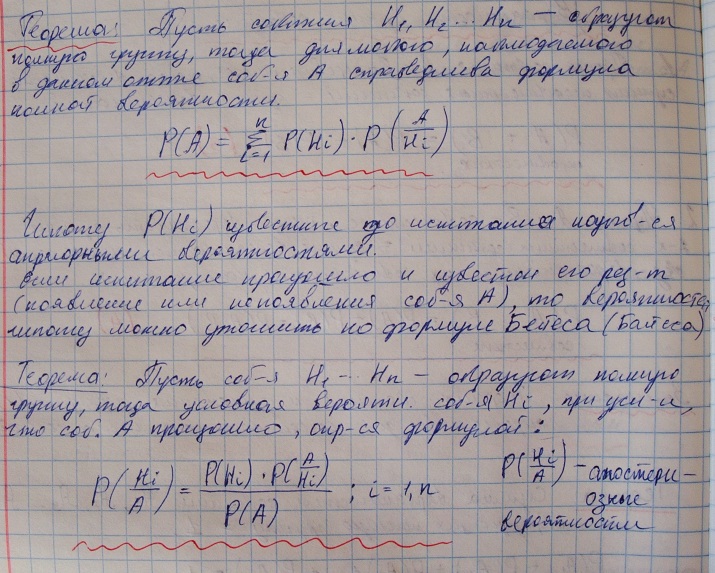 Теорема: Пусть события H₁, H₂ ... Hn – образуют
полную группу, тогда для любого, наблюдаемого
в данном опыте соб-я А справедлива формула
полной вероятности.
P(A) = ∑ᵢ₌₁ⁿ P(Hi) · P(A/Hi)
Гипотез P(Hi) известные до испытания назыв-ся
априорными вероятностями.
Если испытание произошло и известен его рез-т
(появление или непоявления соб-я А), то вероятность
гипотез можно уточнить по формуле Бейеса (Байеса)
Теорема: Пусть соб-я H₁ -- Hn – образуют полную
группу, тогда условная вероятн. соб-я Hi, при усл-и,
что соб. А произошло, опр-ся формулой:
P(Hi/A) = P(Hi) · P(A/Hi) / P(A) ; i = 1,n
P(Hi/A) – апостери-
озные
вероятности